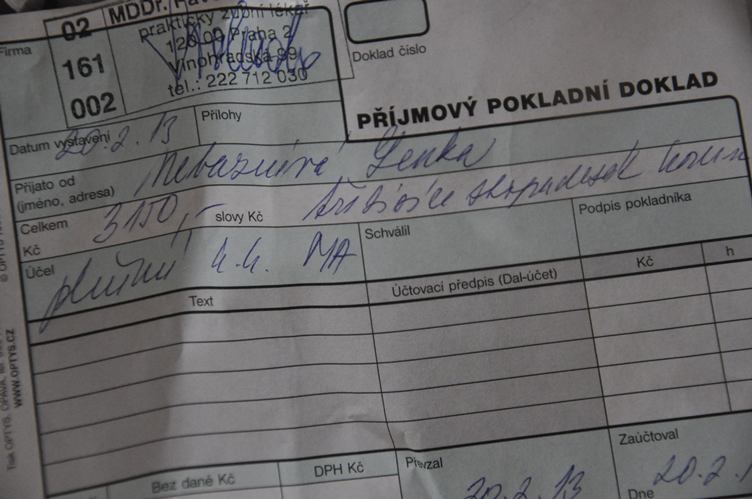 Firma
02 MDDr.
161 praktický zubní lékař
002 120 00 Praha 2
Vinohradská 99
tel.: 222 712 030
Doklad číslo
PŘÍJMOVÝ POKLADNÍ DOKLAD
Datum vystavení 20.2.13 Přílohy
Přijato od Lenka
(jméno, adresa)
Celkem 3150,- slovy Kč
Kč
Podpis pokladníka
Účel Schválil
Text Účtovací předpis (Dal-účet) Kč h
Bez daně Kč DPH Kč Převzal Zaúčtoval
20.2.13 Dne 20.2.1
Tisk OPTYS, OPAVA
WWW.OPTYS.CZ
© OPTYS